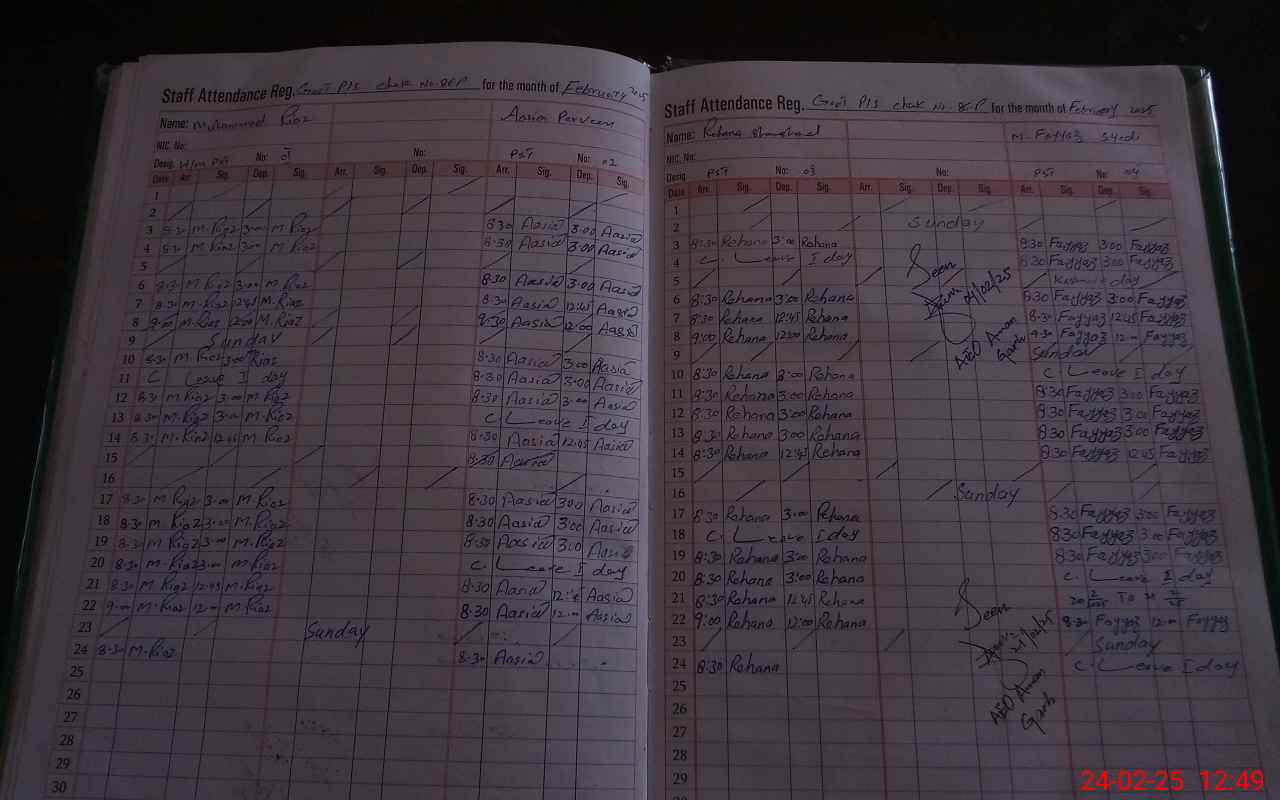 Staff Attendance Reg. Govt P/S chak No. 8EP for the month of February 2025
Name: Muhammad Riaz Aasia Perveen
NIC. No:
Desig. H/M PST No: 01 No: PST No: 02
Date Arr. Sig. Dep. Sig. Arr. Sig. Dep. Sig. Arr. Sig. Dep. Sig.
1
2
3 8:30 M.Riaz 3:00 M.Riaz 8:30 Aasia 3:00 Aasia
4 8:30 M.Riaz 3:00 M.Riaz 8:30 Aasia 3:00 Aasia
5
6 8:30 M.Riaz 3:00 M.Riaz 8:30 Aasia 3:00 Aasia
7 8:30 M.Riaz 12:45 M.Riaz 8:30 Aasia 12:45 Aasia
8 9:00 M.Riaz 12:00 M.Riaz 9:30 Aasia 12:00 Aasia
9 Sunday
10 8:30 M.Riaz 3:00 Riaz 8:30 Aasia 3:00 Aasia
11 C Leave I day 8:30 Aasia 3:00 Aasia
12 8:30 M.Riaz 3:00 M.Riaz 8:30 Aasia 3:00 Aasia
13 8:30 M.Riaz 3:00 M.Riaz C Leave I day
14 8:30 M.Riaz 12:45 M.Riaz 8:30 Aasia 12:45 Aasia
15 8:30 Aasia
16
17 8:30 M.Riaz 3:00 M.Riaz 8:30 Aasia 3:00 Aasia
18 8:30 M.Riaz 3:00 M.Riaz 8:30 Aasia 3:00 Aasia
19 8:30 M.Riaz 3:00 M.Riaz 8:30 Aasia 3:00 Aasia
20 8:30 M.Riaz 3:00 M.Riaz C. Leave I day
21 8:30 M.Riaz 12:45 M.Riaz 8:30 Aasia Aasia
22 9:00 M.Riaz 12:00 M.Riaz 8:30 Aasia 12:00 Aasia
23 Sunday
24 8:30 M.Riaz 8:30 Aasia
25
26
27
28
29
30
Staff Attendance Reg. Govt P/S chak No. 8EP for the month of February 2025
Name: Rehana M. Fayyaz Syedi
NIC. No:
Desig. PST No: 03 No: PST No: 04
Date Arr. Sig. Dep. Sig. Arr. Sig. Dep. Sig. Arr. Sig. Dep. Sig.
1
2 Sunday
3 8:30 Rehana 3:00 Rehana 8:30 Fayyaz 3:00 Fayyaz
4 C. Leave I day 8:30 Fayyaz 3:00 Fayyaz
5 Kashmir day
6 8:30 Rehana 3:00 Rehana 8:30 Fayyaz 3:00 Fayyaz
7 8:30 Rehana 12:45 Rehana 8:30 Fayyaz 12:45 Fayyaz
8 9:00 Rehana 12:00 Rehana 9:30 Fayyaz 12:00 Fayyaz
9 Sunday
10 8:30 Rehana 3:00 Rehana C Leave I day
11 8:30 Rehana 3:00 Rehana 8:30 Fayyaz 3:00 Fayyaz
12 8:30 Rehana 3:00 Rehana 8:30 Fayyaz 3:00 Fayyaz
13 8:30 Rehana 3:00 Rehana 8:30 Fayyaz 3:00 Fayyaz
14 8:30 Rehana 12:45 Rehana 8:30 Fayyaz 12:45 Fayyaz
15
16 Sunday
17 8:30 Rehana 3:00 Rehana 8:30 Fayyaz 3:00 Fayyaz
18 C. Leave I day 8:30 Fayyaz 3:00 Fayyaz
19 8:30 Rehana 3:00 Rehana 8:30 Fayyaz 3:00 Fayyaz
20 8:30 Rehana 3:00 Rehana C. Leave I day
21 8:30 Rehana 12:45 Rehana
22 9:00 Rehana 12:00 Rehana 8:30 Fayyaz 12:00 Fayyaz
23 Sunday
24 8:30 Rehana C. Leave I day
25
26
27
28
29
Seen
04/02/25
AEO Aman
Garh
Seen
21/02/25
AEO Aman
Garh
24-02-25 12:49